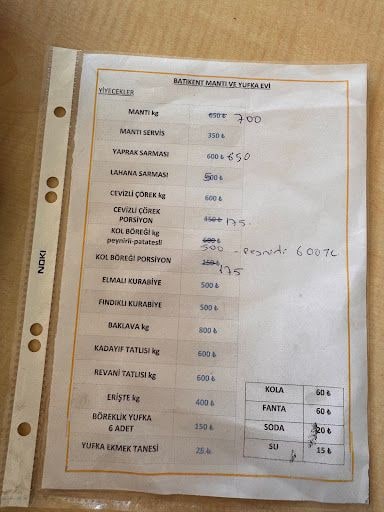 BATIKENT MANTI VE YUFKA EVİ
YİYECEKLER
MANTI kg 650 ₺ 700
MANTI SERVİS 350 ₺
YAPRAK SARMASI 600 ₺ 650
LAHANA SARMASI 500 ₺
CEVİZLİ ÇÖREK kg 600 ₺
CEVİZLİ ÇÖREK
PORSİYON 150 ₺ 175
KOL BÖREĞİ kg
peynirli-patatesli 600 ₺
500 - Peynirli 600TL
KOL BÖREĞİ PORSİYON 150 ₺
175
ELMALI KURABİYE 500 ₺
FINDIKLI KURABİYE 500 ₺
BAKLAVA kg 800 ₺
KADAYIF TATLISI kg 600 ₺
REVANİ TATLISI kg 600 ₺
ERİŞTE kg 400 ₺
BÖREKLİK YUFKA
6 ADET 150 ₺
YUFKA EKMEK TANESİ 25 ₺
KOLA 60 ₺
FANTA 60 ₺
SODA 20 ₺
SU 15 ₺
NOKI